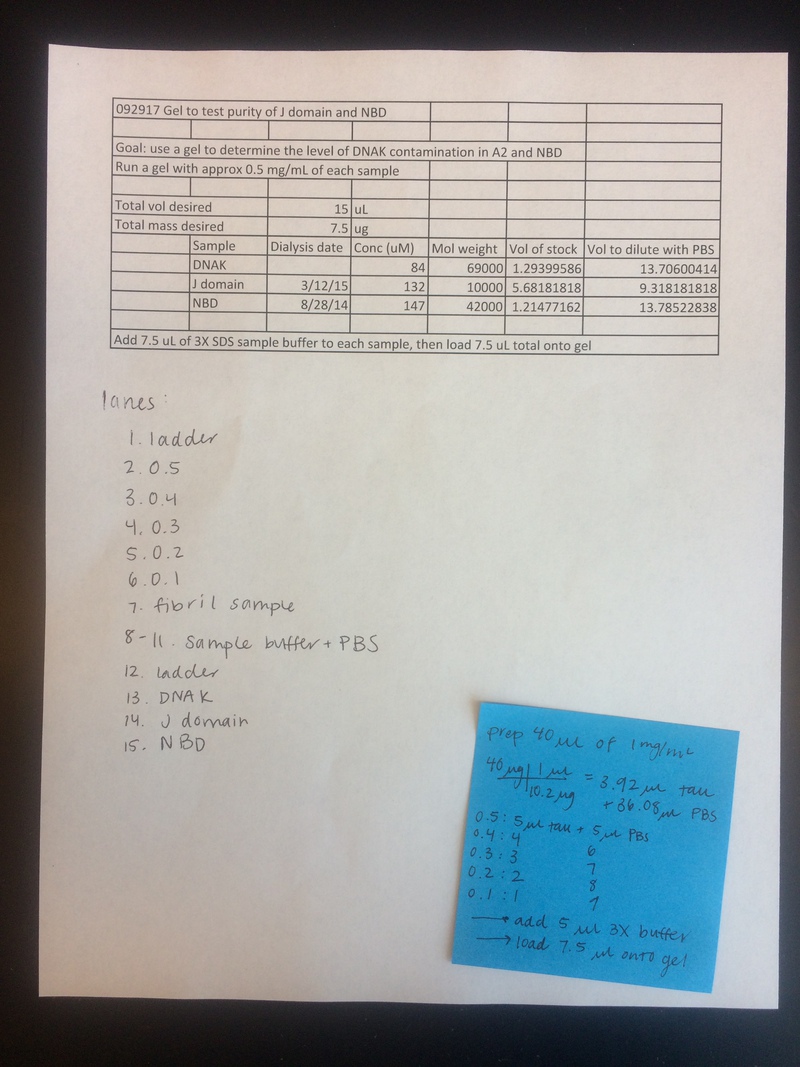 092917 Gel to test purity of J domain and NBD
Goal: use a gel to determine the level of DNAK contamination in A2 and NBD
Run a gel with approx 0.5 mg/mL of each sample
Total vol desired 15 uL
Total mass desired 7.5 ug
Sample Dialysis date Conc (uM) Mol weight Vol of stock Vol to dilute with PBS
DNAK 84 69000 1.29399586 13.70600414
J domain 3/12/15 132 10000 5.68181818 9.318181818
NBD 8/28/14 147 42000 1.21477162 13.78522838
Add 7.5 uL of 3X SDS sample buffer to each sample, then load 7.5 uL total onto gel
lanes:
1. ladder
2. 0.5
3. 0.4
4. 0.3
5. 0.2
6. 0.1
7. fibril sample
8-11. sample buffer + PBS
12. ladder
13. DNAK
14. J domain
15. NBD
prep 40 uL of 1mg/mL
40 ug | 1 uL = 3.92 uL tau
| 10.2 ug + 36.08 uL PBS
0.5: 5 uL tau + 5 uL PBS
0.4: 4 6
0.3: 3 7
0.2: 2 8
0.1: 1 9
→ add 5 uL 3X buffer
→ load 7.5 uL onto gel